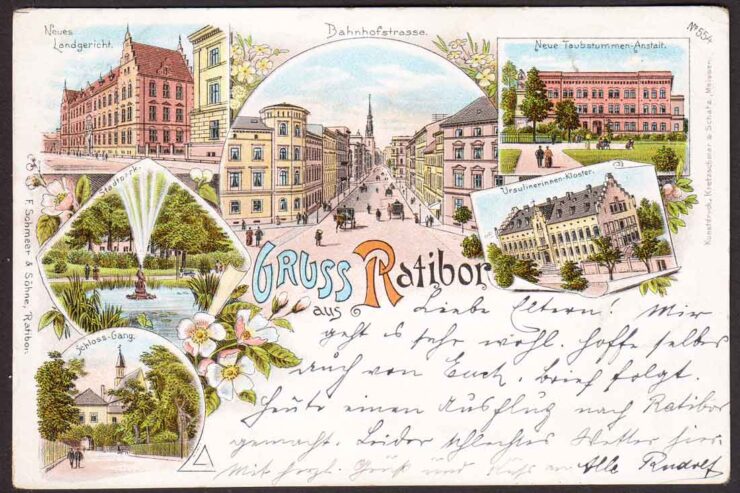 Neues
Landgericht.
Bahnhofstrasse.
No 554
Neue Taubstummen-Anstalt.
Stadtpark.
Ursulinerinnen-Kloster.
Schloss-Gang.
GRUSS
aus
Ratibor
F. Schmeer & Söhne, Ratibor.
Kunstdruck, Kretzschmar & Schatz, Meissen.
Liebe Eltern! Mir
geht es sehr wohl. hoffe selbes
auch von Euch. brief folgt.
Heute einen Ausflug nach Ratibor
gemacht. Leider schlechtes Wetter hier.
Mit herzl. Gruß und Kuss an Alle Rudolf